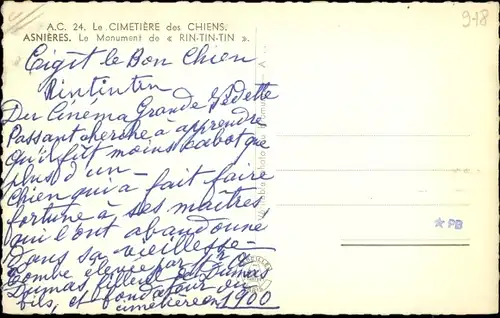 A.C. 24. Le CIMETIÈRE des CHIENS.
ASNIÈRES. Le Monument de « RIN-TIN-TIN ».
978
Cigit le Bon Chien
Rintintin
Du Cinéma Grande Vedette
Passant cherche à apprendre
qu'il fût moins cabot que
plus d'un -
Chien qui a fait faire
fortune à ses maîtres
qui l'ont abandonné
dans sa vieillesse -
Tombe élevée par
Dumas filleul de Dumas
fils, et fondateur du
cimetière en 1900
Véritable photo
* PB